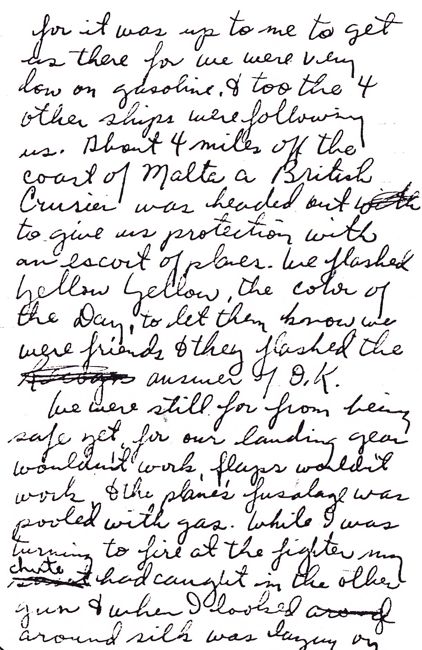 for it was up to me to get
us there for we were very
low on gasoline, & too the 4
other ships were following
us. About 4 miles off the
coast of Malta a British
Crurier was headed out with
to give us protection with
an escort of planes. We flashed
Yellow Yellow, the color of
the Day, to let them know we
were friends & they flashed the
answer of O.K.
We were still far from being
safe yet, for our landing gear
wouldn't work, flaps wouldn't
work, & the plane's fusalage was
pooled with gas. While I was
turning to fire at the fighter my
chute had caught in the other
gun & when I looked aroud
around silk was laying on